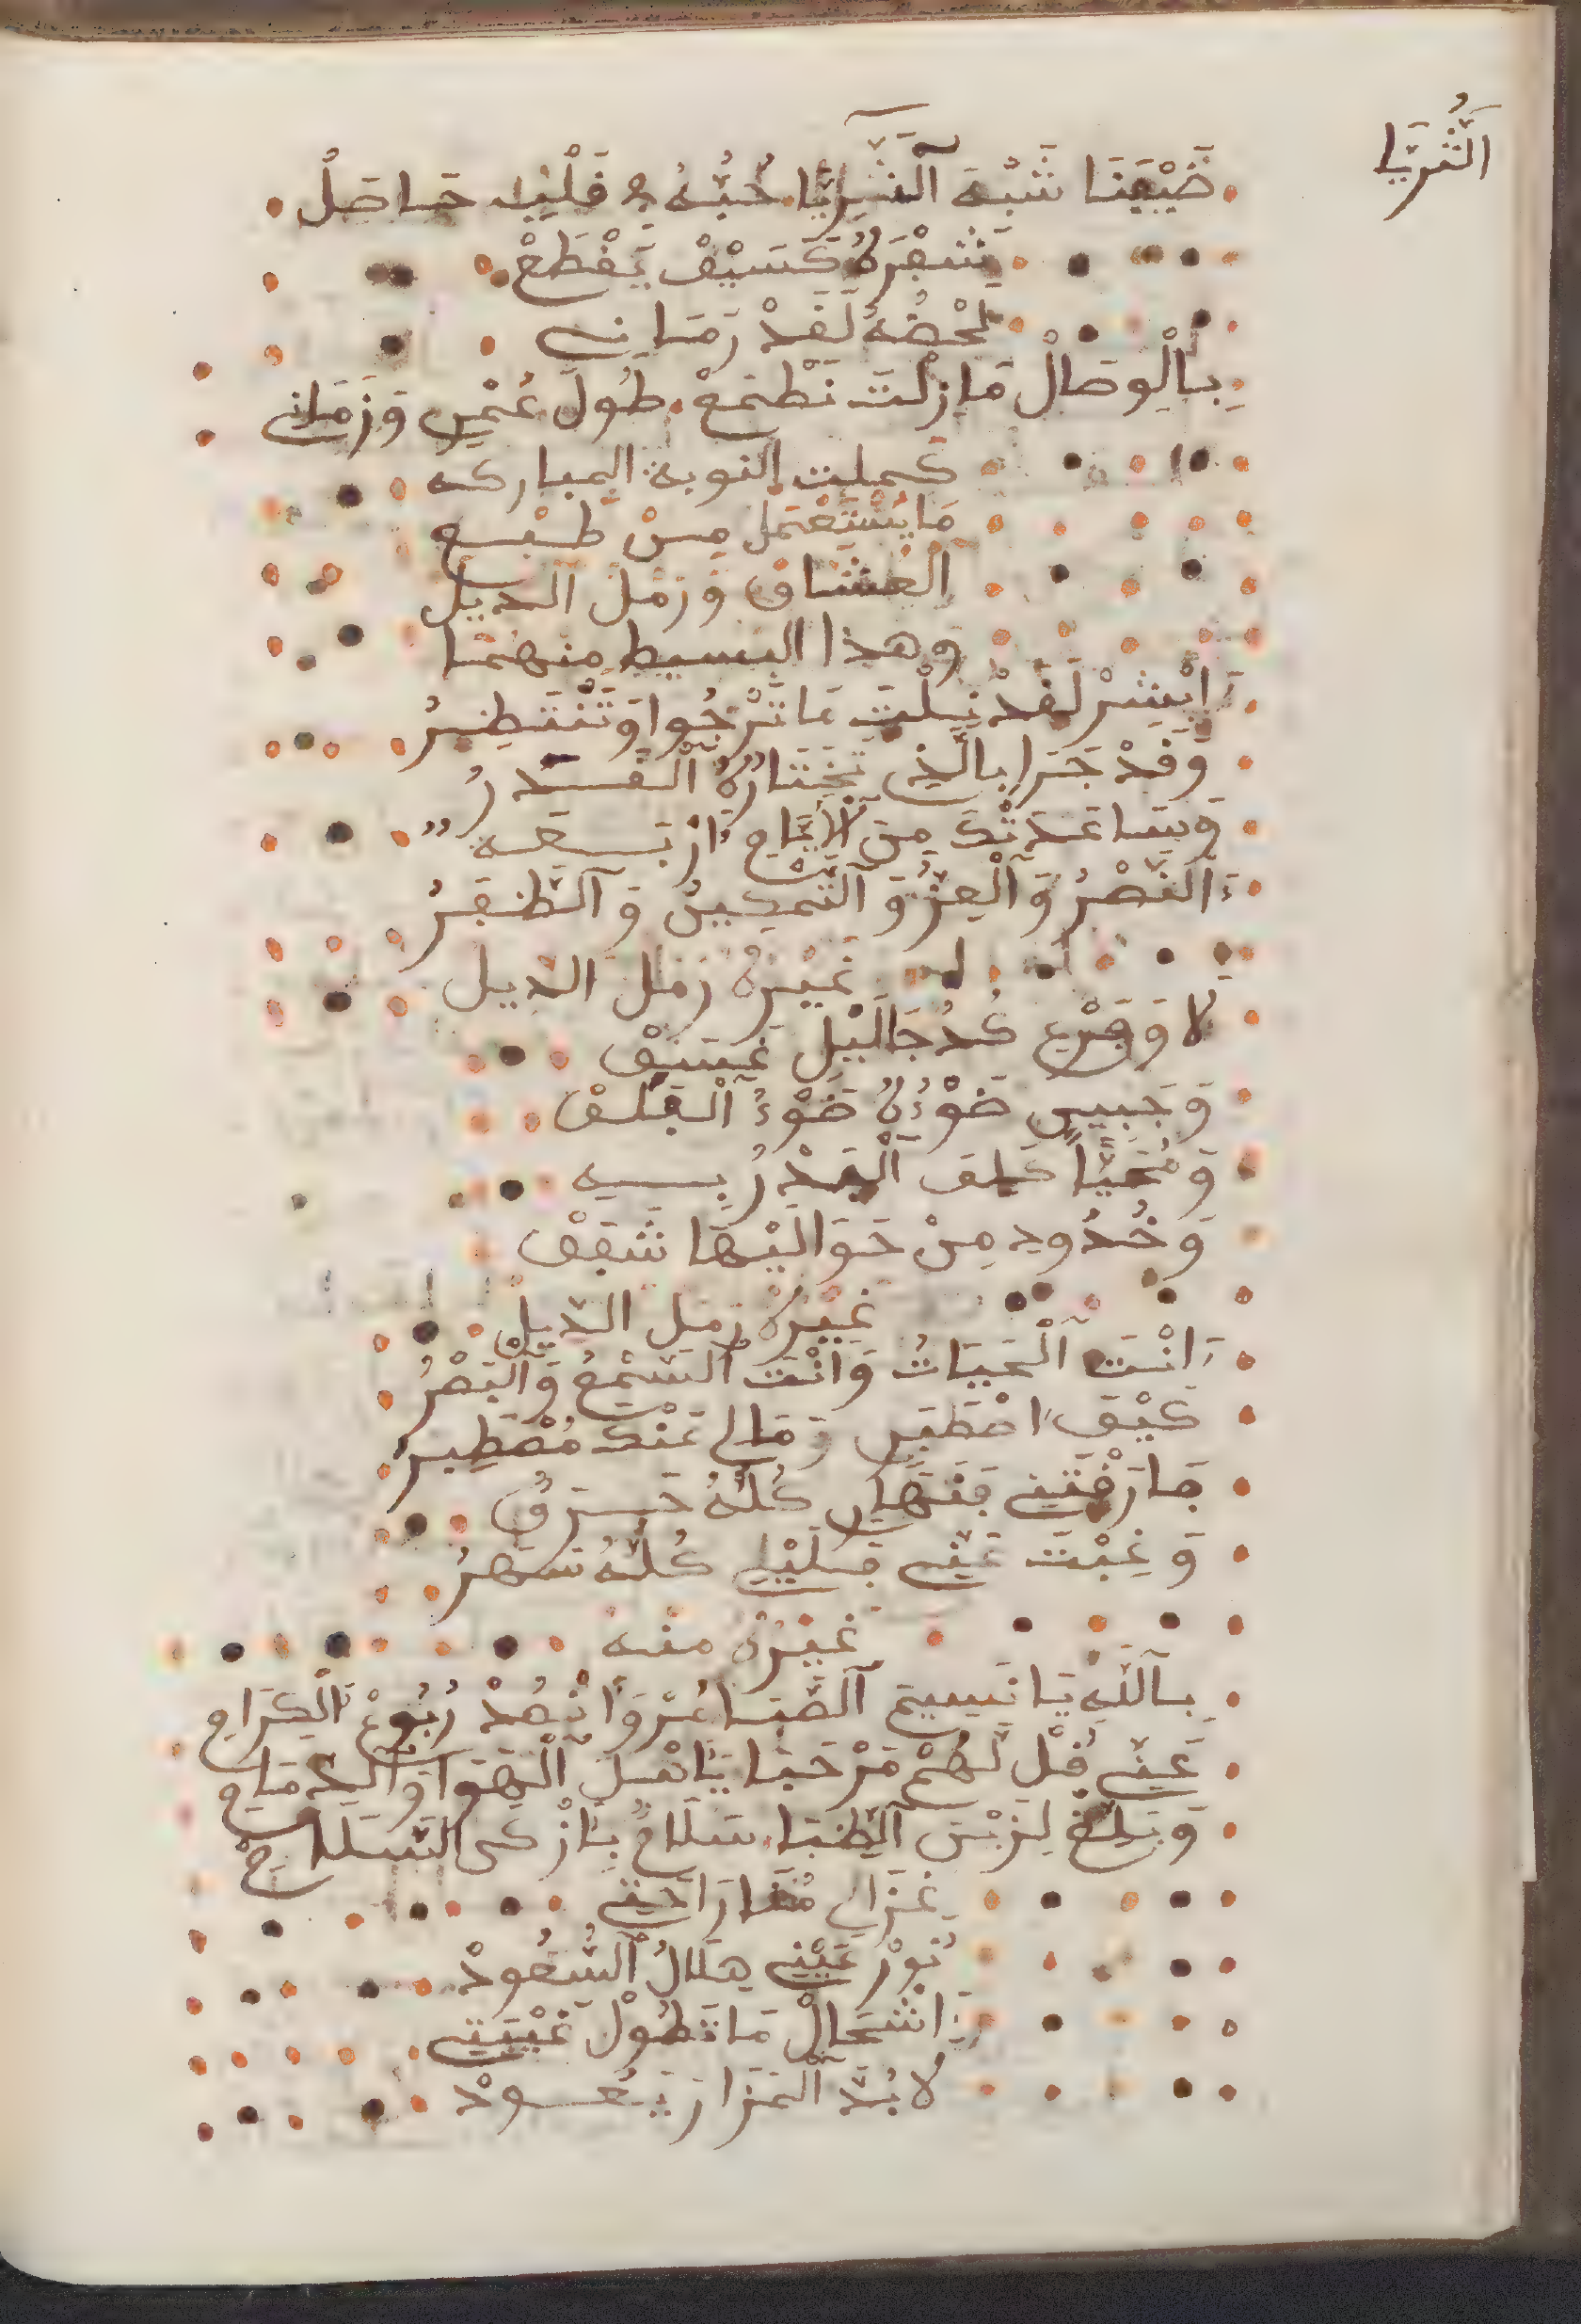 اَلثُّرَيَّا
ضَيْعَنَا شَبْهَ اَلثُّرَيَّا حُبُّهُ في قَلْبِي حَاصَلْ
شَفْرَهُ كَسَيْفْ يَقْطَعْ
لَحْضُهُ لَقَدْ رَمَانِي
بِالْوِصَالْ مَا زِلْتَ نَطْمَعْ طُولَ عُمْرِي وَزَمَانِي
كملت النوبة المباركه
مَا يُسْتَعْمَلْ مِنْ طَبْعِ
اَلْعُشَّاقِ وَرَمْلَ الذيل
وهذا البسيط منهما
اَبْشِرْ لَقَدْ نِلْتَ مَا تَرْجُوا وَتَنْتَطِرُ
وَقَدْ جَرَا بِالَّذِي تَخْتَارُهُ اَلْقَدَرُ
وَسَاعَدَتْكَ مِنَ اَلْأَيَّامِ اَرْبَعَة
اَلنَّصْرُ وَالْعِزُّ وَالتَّمْكِينُ وَالظَّفَرُ
غَيْرُهُ رَمَل الذيل
لَا وَفَرْعٍ كَدُجَا لَّيْلِ غَسَقْ
وَجَبِينٍ ضَوْءُهُ ضَوْءُ اَلْفَلَقْ
وَمُحَيَّاً كَلِفَ اَلْبَدْرُ بِهِ
وَخُدُودٍ مِنْ حَوَالَيْهَا شَفَقْ
غَيْرُهُ رَمَل الذَّيل
اَنْتَ اَلْحَيَاتُ وَاَنْتَ السَّمْعُ وَالْبَصْرُ
كَيْفَ اصْطَبَرِي وَمَالِي عَنْكَ مُصْطَبِرُ
فَارَقْتَنِي فَنَهَارِي كُلُّهُ حَرَقٌ
وَغِبْتَ عَنِّي فَلَيْلِي كُلُّهُ سَهَرُ
غَيْرُهُ منه
بِاللَّهِ يَا نَسِيمَ اَلصَّبَا عُرْ وَاقْصُدْ رُبُوعَ اَلْكِرَامِ
عَنِّي قُلْ لَهُمْ مَرْحَبَا يَا اَهْلَ اَلْهَوَا وَالذِّمَامِ
وَبَلِّغْ لِزَيْنَ اَلظِّبَا سَلَامٌ بِأَزْكَى السَّلَامْ
غَزَالِي مُنَا رَاحَتِي
نُورْ عَيْنِي هِلَالُ السُّعُودْ
اَشْحَالْ مَا تَطُولْ غَيْبَتِي
لَا بُدَّ اَلْمَزَارْ يَعُودْ